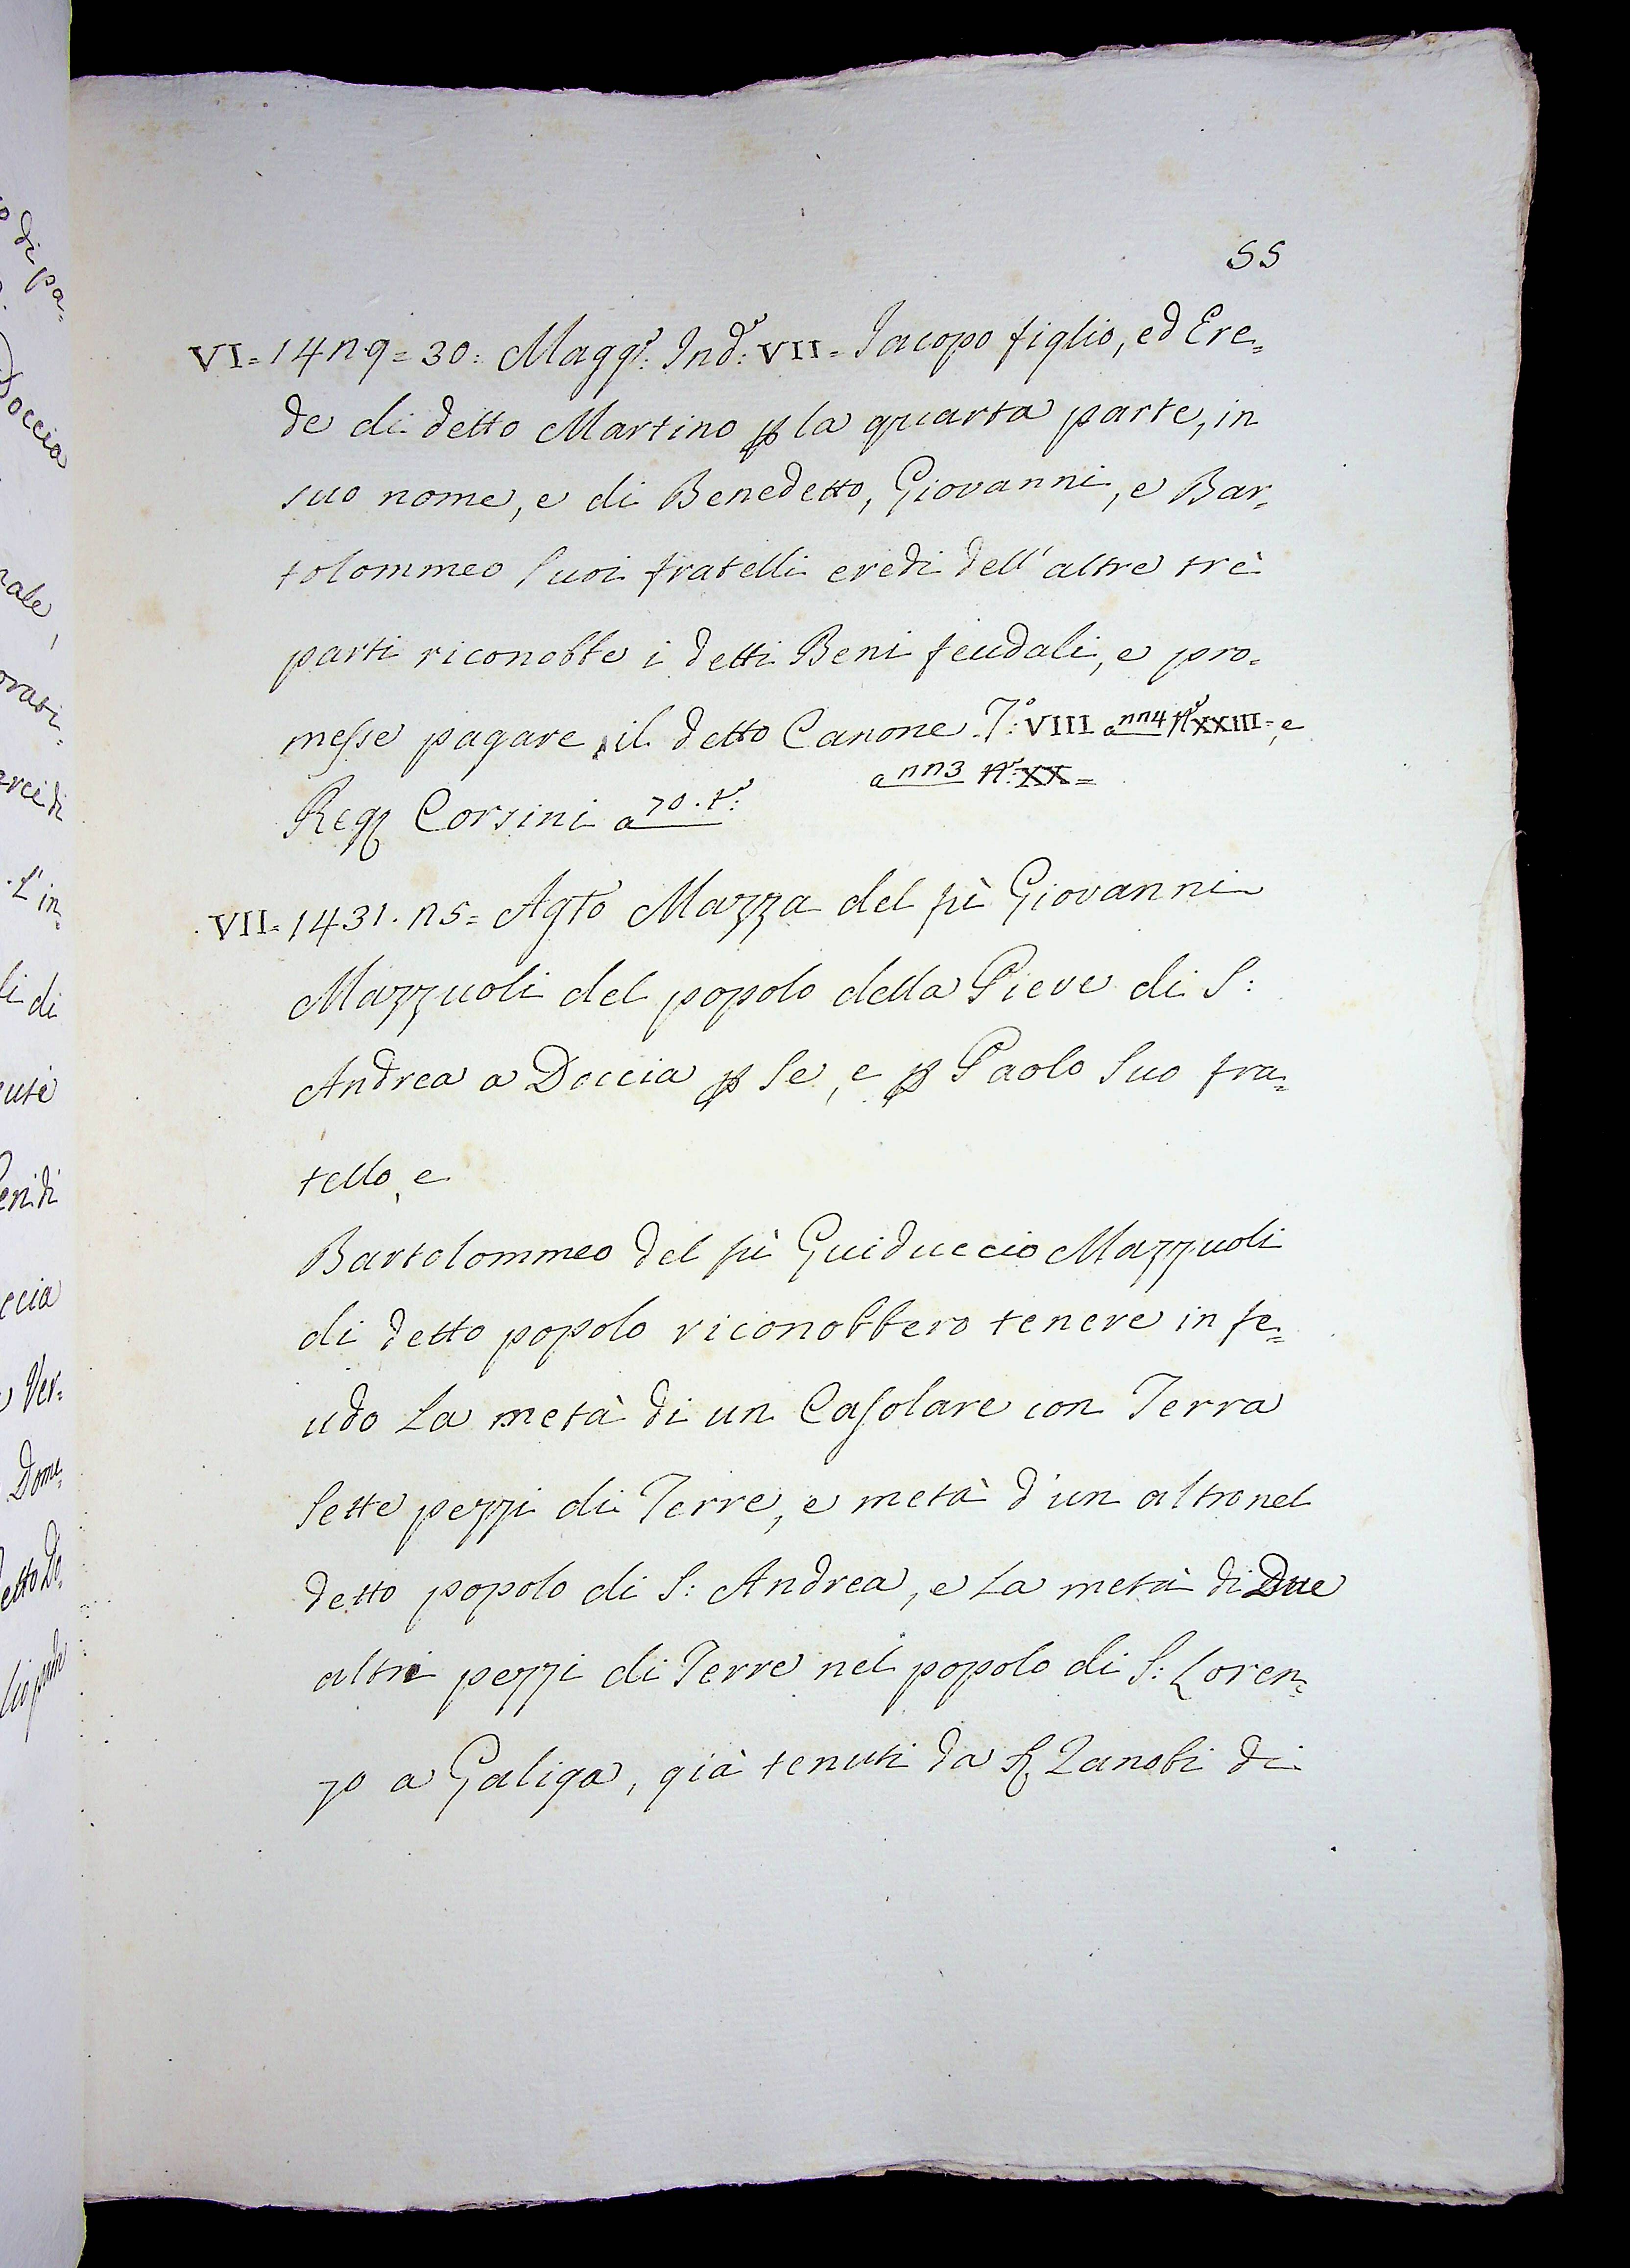 55
VI = 14n9 = 30: Magg.º: Ind.º: VII = Jacopo figlio, ed Ere=
de di detto Martino ꝑ la quarta parte, in
suo nome, e di Benedetto, Giovanni, e Bar=
tolommeo suoi fratelli eredi dell'altre trè
parti riconobbe i detti Beni feudali, e pro=
messe pagare il detto Canone. T.º: VIII a nn4 N.º XXIII =, e
a nn3 N.º: XX =
Reg. Corsini a 70. t.º:
VII = 1431. n5 = Agto Mazza del fù Giovanni
Mazzuoli del popolo della Pieve di S:
Andrea a Doccia ꝑ se, e ꝑ Paolo suo fra=
tello, e
Bartolommeo del fù Guiduccio Mazzuoli
di detto popolo riconobbero tenere in fe=
udo la metà di un Casolare con Terra
sette pezzi di Terre, e metà d'un altro nel
detto popolo di S: Andrea, e la metà di Due
altri pezzi di Terre nel popolo di S: Loren=
zo a Galiga, già tenuti da S. Zanobi di
di pa=
Doccia
nale,
L'in=
di
ccia
Ver=
Dome=